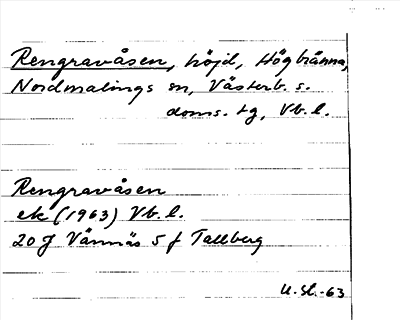 Rengravåsen, höjd, Högbränna,
Nordmalings sn, Västerb. s.
doms. tg, Vb. l.
Rengravåsen
ek (1963) Vb. l.
20 J Vännäs 5 f Tallberg
U. St. -63